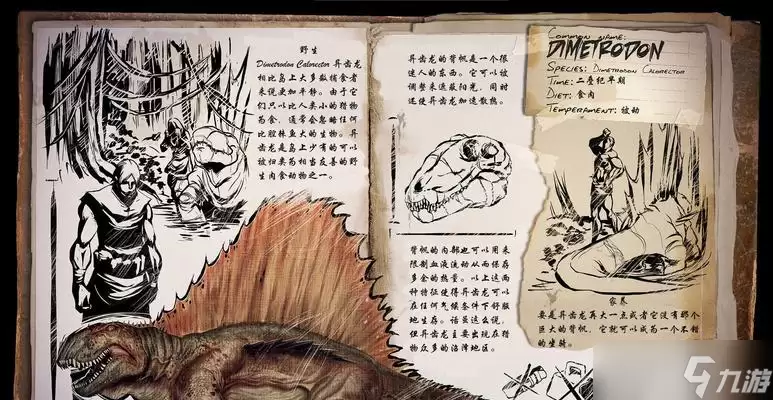 野生
Dimetrodon Calorector 异齿龙
相比岛上大多数捕食者
来说更加平静。由于它
们只以比人类小的猎物
为食，通常会忽略任何
比腔棘鱼大的生物。异
齿龙是岛上少有的可以
被归类为相当友善的野
生肉食动物之一。
异齿龙的背帆是一个很
迷人的东西。它可以被
调整来遮蔽阳光，同时
还使异齿龙加速散热。
背帆的内部也可以用来
限制血液流动从而保存
多余的热量。以上这两
种特征使得异齿龙可以
在任何气候条件下舒服
地生存。话虽这么说，
但异齿龙主要出现在猎
物众多的沼泽地区。
Common Name:
DIMETRODON
Species: Dimetrodon Calorector
Time: 二叠纪早期
Diet: 食肉
Temperament: 被动
家养
要是异齿龙再大一点或者它没有那个
巨大的背帆，它就可以成为一个不错
的坐骑。
九游